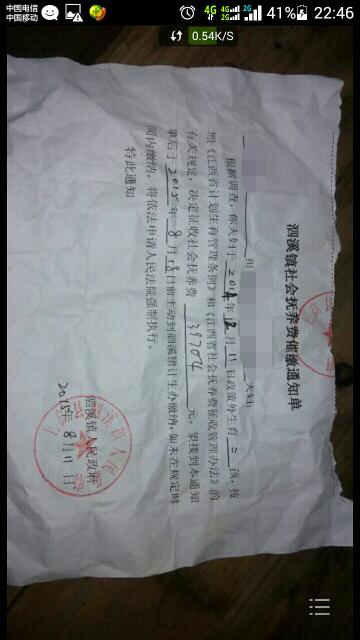 中国电信
中国移动
4G 4G 2G 41% 22:46
0.54K/S
泗溪镇社会抚养费催缴通知单
夫妇:
根据调查,你夫妇于 2014 年 12 月 11 日政策外生育 二 孩,按
照《江西省计划生育管理条例》和《江西省社会抚养费征收管理办法》的
有关规定,决定征收社会抚养费 39704 元。望接到本通知
单后于 2015 年 8 月 18 日前主动到泗溪镇计生办缴纳,如未在规定时
间内缴纳,将依法申请人民法院强制执行。
特此通知
泗溪镇人民政府
2015年8月11日